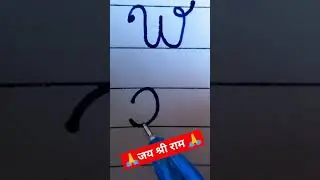 W
🙏जय श्री राम 🙏